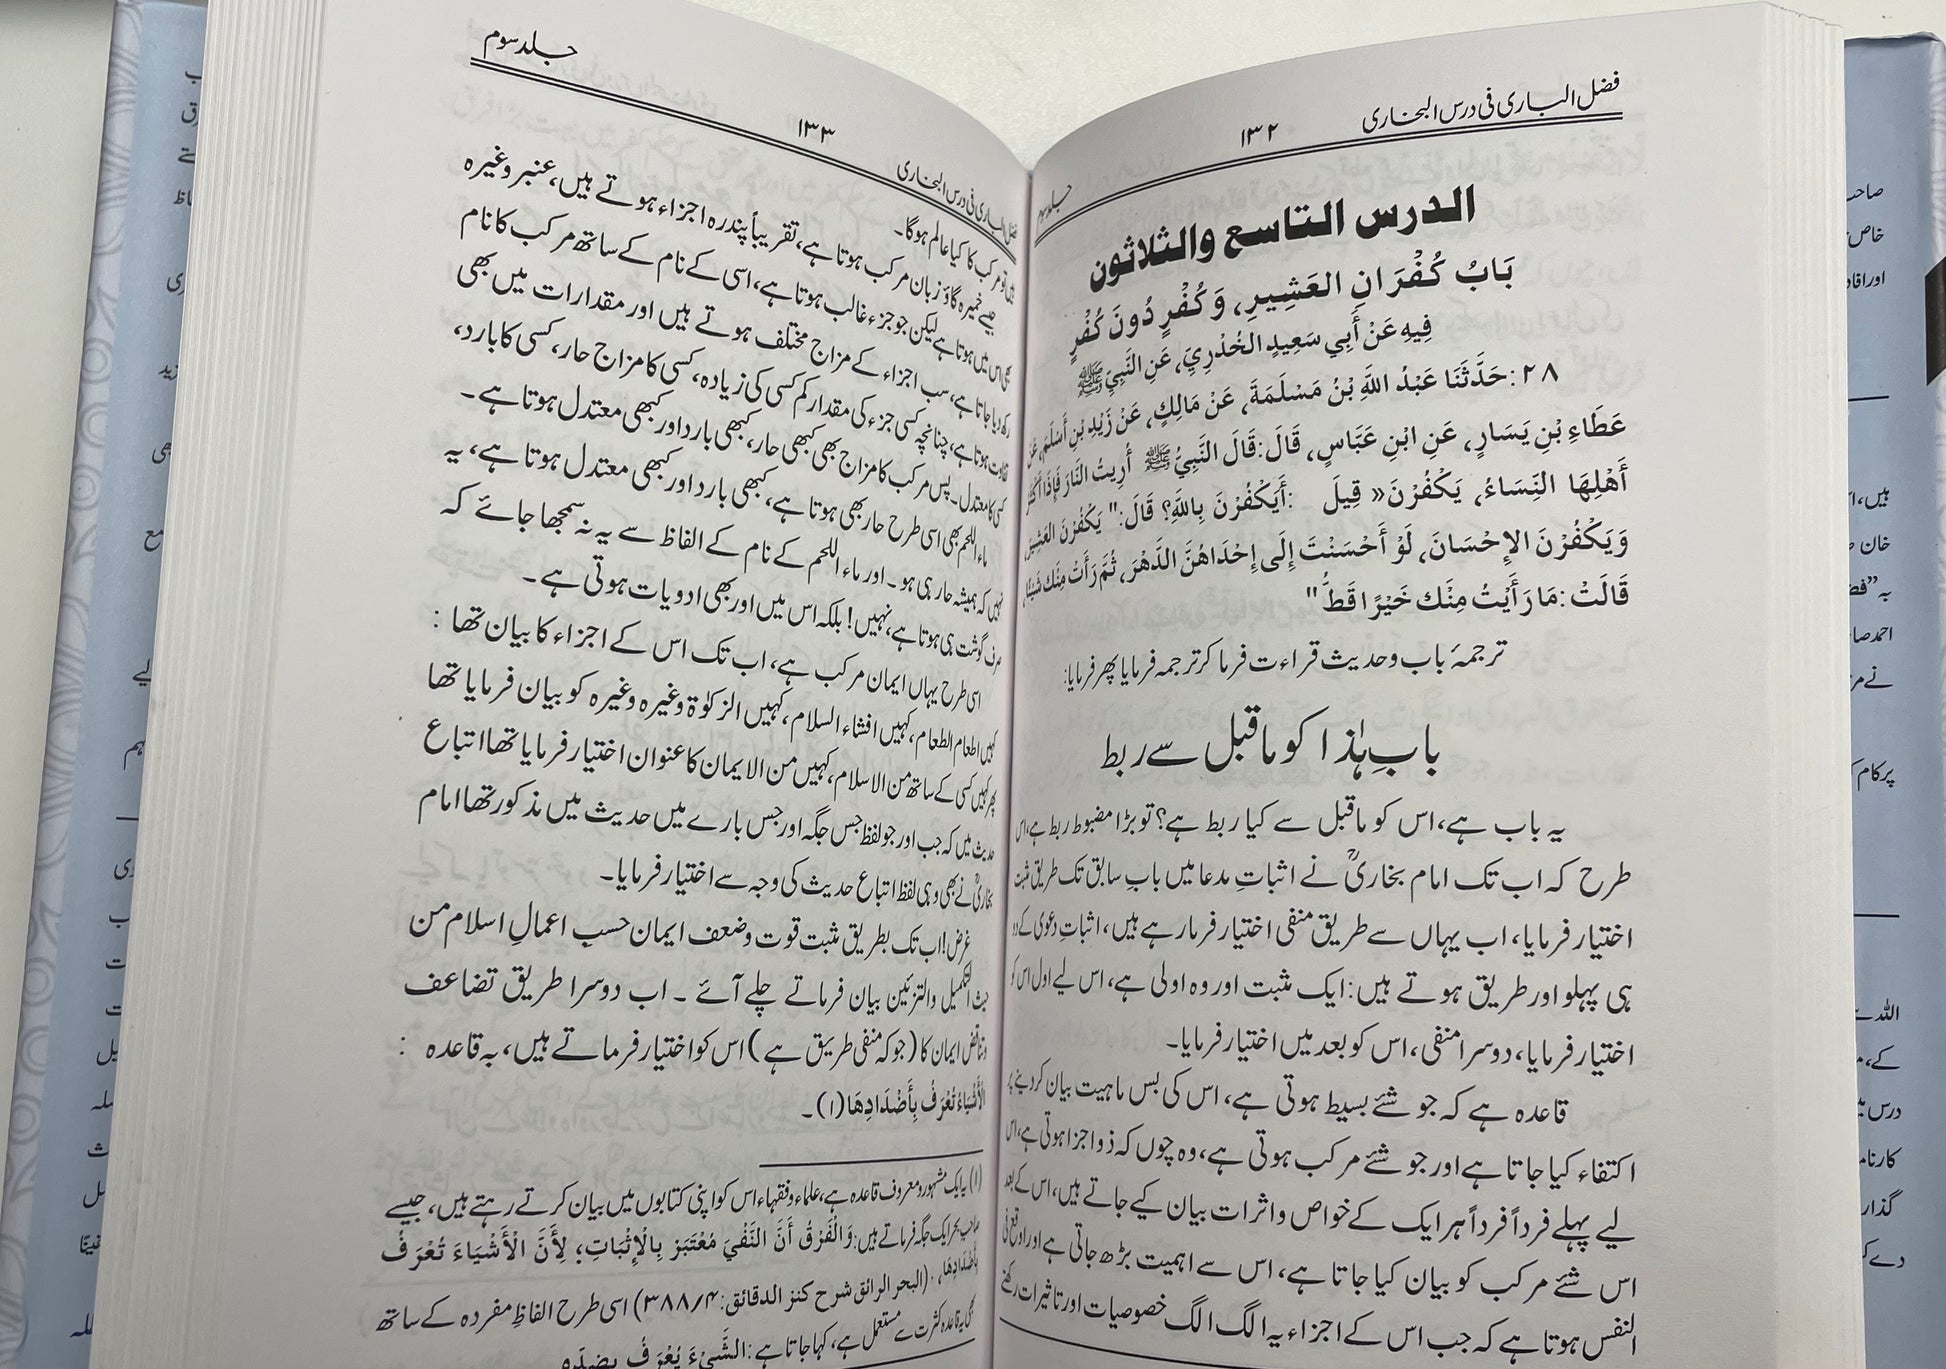 فضل الباری فی درس البخاری
۱۳۲
جلد سوم
الدرس التاسع والثلاثون
بَابُ كُفْرَانِ العَشِيرِ، وَكُفْرٍ دُونَ كُفْرٍ
فِيهِ عَنْ أَبِي سَعِيدٍ الخُدْرِيَ، عَنِ النَّبِيَ ﷺ
۲۸: حَدَّثَنَا عَبْدُ اللَّهِ بْنُ مَسْلَمَةَ، عَنْ مَالِكٍ، عَنْ زَيْدِ بْنِ أَسْلَمَ، عَنْ
عَطَاءِ بْنِ يَسَارٍ، عَنِ ابْنِ عَبَّاسٍ، قَالَ: قَالَ النَّبِيُّ ﷺ أُرِيتُ النَّارَ فَإِذَا أَكْثَرُ
أَهْلِهَا النِّسَاءُ، يَكْفُرْنَ» قِيلَ :أَيَكْفُرْنَ بِاللَّهِ؟ قَالَ: " يَكْفُرْنَ العَشِيرَ
وَيَكْفُرْنَ الإِحْسَانَ، لَوْ أَحْسَنْتَ إِلَى إِحْدَاهُنَّ الدَّهْرَ، ثُمَّ رَأَتْ مِنْكَ شَيْئًا،
قَالَتْ: مَا رَأَيْتُ مِنْكَ خَيْرًا قَطُّ "
ترجمۂ باب و حدیث قراءت فرما کر ترجمہ فرمایا پھر فرمایا:
بابِ ہٰذا کو ما قبل سے ربط
یہ باب ہے، اس کو ما قبل سے کیا ربط ہے؟ تو بڑا مضبوط ربط ہے، اس
طرح کہ اب تک امام بخاریؒ نے اثباتِ مدعا میں بابِ سابق تک طریق مثبت
اختیار فرمایا، اب یہاں سے طریق منفی اختیار فرما رہے ہیں، اثباتِ دعوی کے دو
ہی پہلو اور طریق ہوتے ہیں: ایک مثبت اور وہ اولی ہے، اس لیے اول اس کو
اختیار فرمایا، دوسرا منفی، اس کو بعد میں اختیار فرمایا۔
قاعدہ ہے کہ جو شئے بسیط ہوتی ہے، اس کی بس ماہیت بیان کر دینے پر
اکتفاء کیا جاتا ہے اور جو شئے مرکب ہوتی ہے، وہ چوں کہ ذو اجزا ہوتی ہے، اس
لیے پہلے فرداً فرداً ہر ایک کے خواص و اثرات بیان کیے جاتے ہیں، اس کے بعد
اس شئے مرکب کو بیان کیا جاتا ہے، اس سے اہمیت بڑھ جاتی ہے اور اوقع فی
النفس ہوتا ہے کہ جب اس کے اجزاء یہ الگ الگ خصوصیات اور تاثیرات رکھتے
جلد سوم
۱۳۳
فضل الباری فی درس البخاری
ہیں تو مرکب کا کیا عالم ہوگا۔
جیسے خمیرہ گاؤ زبان مرکب ہوتا ہے، تقریباً پندرہ اجزاء ہوتے ہیں، عنبر وغیرہ
بھی اس میں ہوتا ہے لیکن جو جزء غالب ہوتا ہے، اسی کے نام کے ساتھ مرکب کا نام
رکھ دیا جاتا ہے، سب اجزاء کے مزاج مختلف ہوتے ہیں اور مقدارات میں بھی
تفاوت ہوتا ہے، چنانچہ کسی جزء کی مقدار کم کسی کی زیادہ، کسی کا مزاج حار، کسی کا بارد،
کسی کا معتدل۔ پس مرکب کا مزاج بھی کبھی حار، کبھی بارد اور کبھی معتدل ہوتا ہے۔
ماء اللحم بھی اسی طرح حار بھی ہوتا ہے، کبھی بارد اور کبھی معتدل ہوتا ہے، یہ
نہیں کہ ہمیشہ حار ہی ہو۔ اور ماء اللحم کے نام کے الفاظ سے یہ نہ سمجھا جائے کہ
صرف گوشت ہی ہوتا ہے، نہیں! بلکہ اس میں اور بھی ادویات ہوتی ہے۔
اسی طرح یہاں ایمان مرکب ہے، اب تک اس کے اجزاء کا بیان تھا :
کہیں اطعام الطعام، کہیں افشاء السلام، کہیں الزکوٰۃ وغیرہ وغیرہ کو بیان فرمایا تھا
پھر کہیں کسی کے ساتھ من الاسلام، کہیں من الایمان کا عنوان اختیار فرمایا تھا اتباع
حدیث میں کہ جب اور جو لفظ جس جگہ اور جس بارے میں حدیث میں مذکور تھا امام
بخاریؒ نے بھی وہی لفظ اتباع حدیث کی وجہ سے اختیار فرمایا۔
غرض! اب تک بطریق مثبت قوت و ضعف ایمان حسب اعمالِ اسلام من
حیث التکمیل والتزئین بیان فرماتے چلے آئے ۔ اب دوسرا طریق تضاعف
و تناقص ایمان کا (جو کہ منفی طریق ہے) اس کو اختیار فرماتے ہیں، بہ قاعدہ :
الْأَشْيَاءُ تُعْرَفُ بِأَضْدَادِهَا (۱)۔
(۱) یہ ایک مشہور و معروف قاعدہ ہے، علماء و فقہاء اس کو اپنی کتابوں میں بیان کرتے رہتے ہیں، جیسے
صاحب بحر ایک جگہ فرماتے ہیں: وَالْفَرْقُ أَنَّ النَّفْيَ مُعْتَبَرٌ بِالْإِثْبَاتِ؛ لِأَنَّ الْأَشْيَاءَ تُعْرَفُ
بِأَضْدَادِهَا، (البحر الرائق شرح كنز الدقائق: ۳۸۸/۴) اسی طرح الفاظِ مفردہ کے ساتھ
بھی یہ قاعدہ کثرت سے مستعمل ہے، کہا جاتا ہے: الشَّيْءَ يُعْرَفُ بِضِدِّهِ